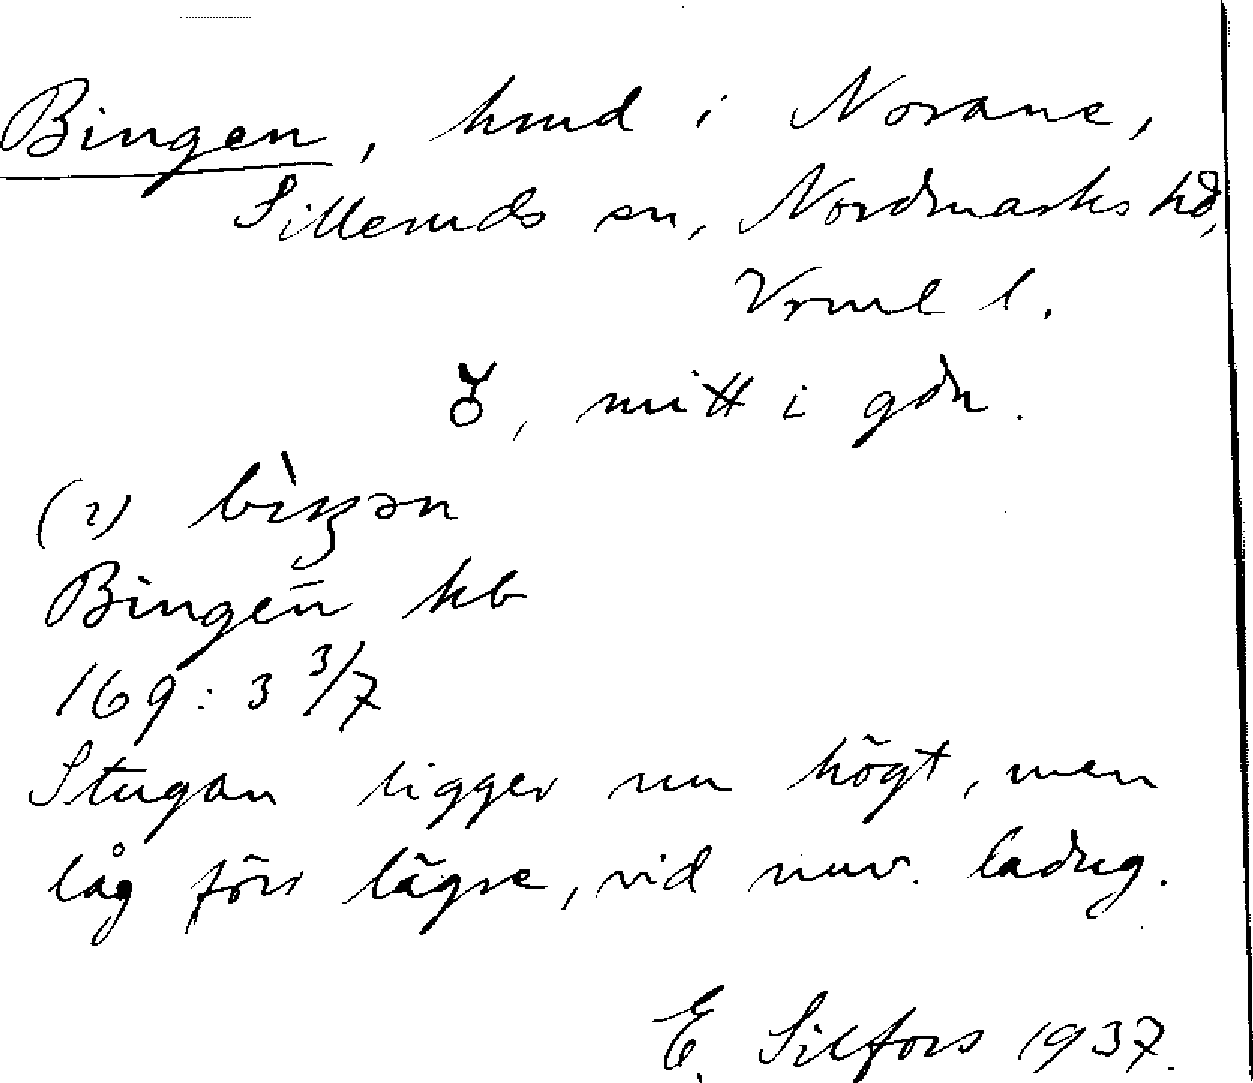 Bingen, hmd i Norane,
Silleruds sn, Nordmarks hd,
Vrml l.
♉, mitt i gdn.
(2) bìŋən
Bingen̄ kb
169:3 3/7
Stugan ligger nu högt, men
låg förr lägre, vid nuv. ladug.
E. Silfors 1937.